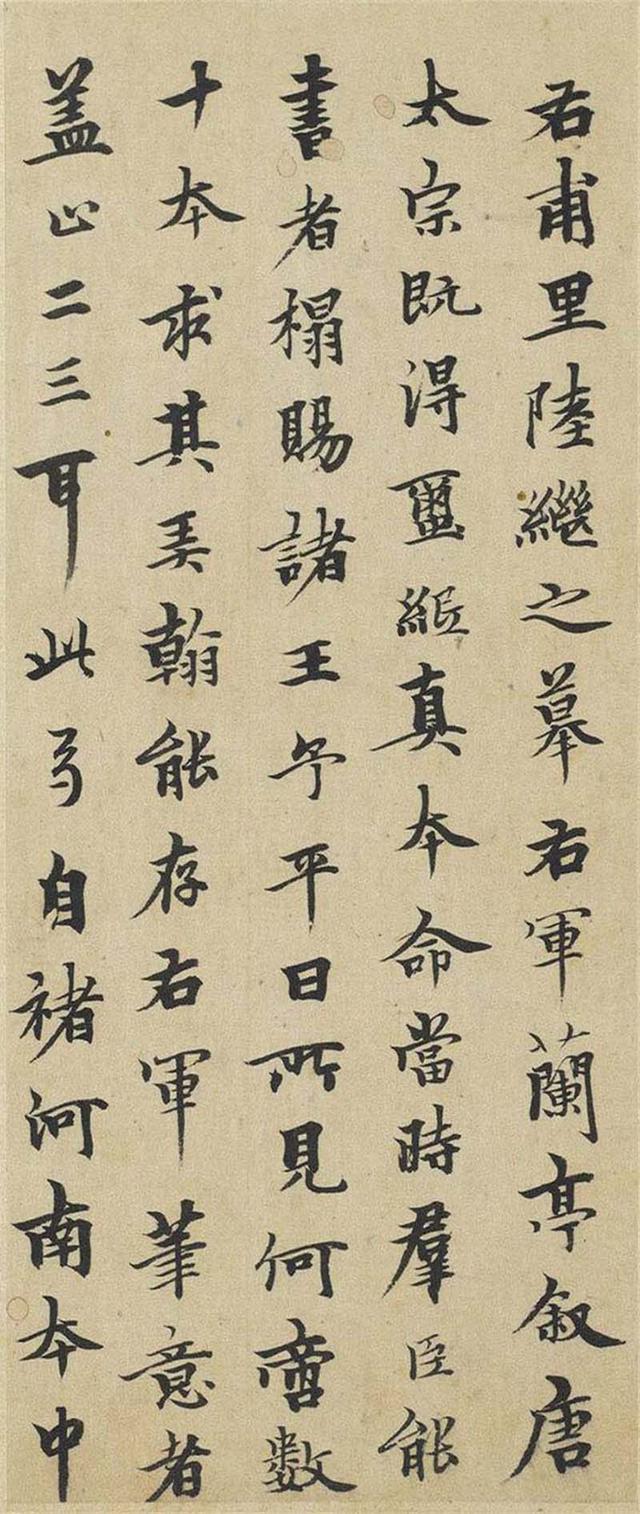 右甫里陸繼之摹右軍蘭亭叙唐
太宗既得璽縱真本命當時羣臣能
書者榻賜諸王予平日所見何啻数
十本求其美翰能存右軍筆意者
盖止二三耳此乃自褚河南本中